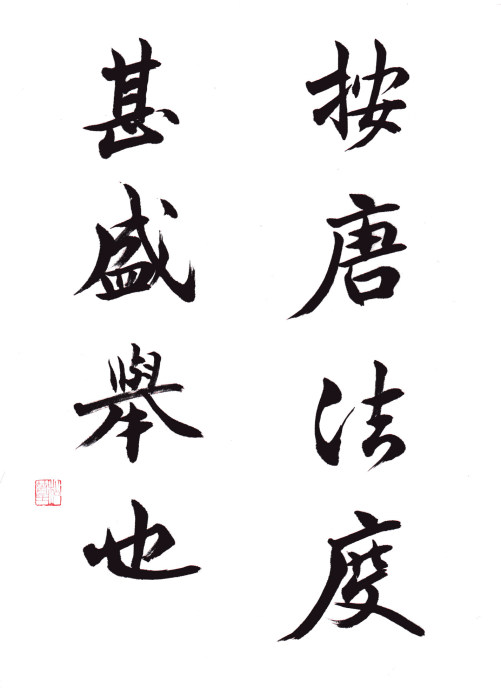 按唐法度
甚盛舉也